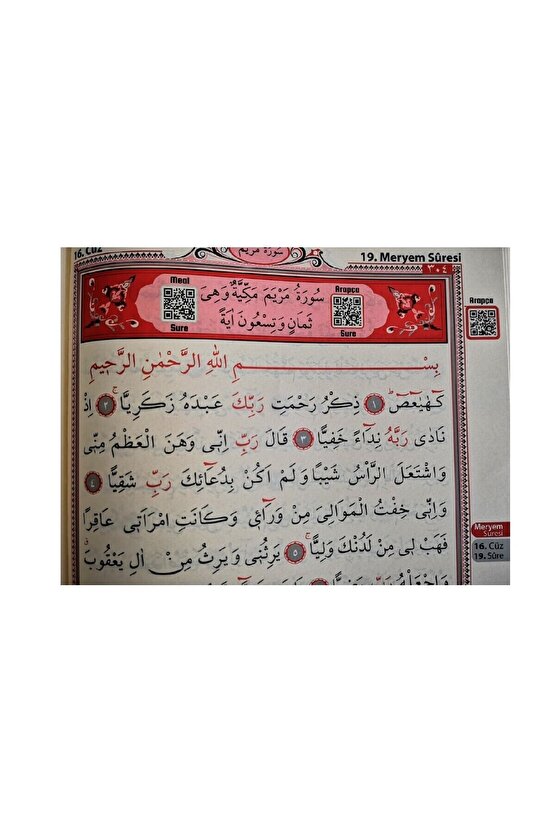 16. Cüz
سُورَةُ مَرْيَمَ
19. Meryem Sûresi
٣٠٤
Meal
Sure
سُورَةُ مَرْيَمَ مَكِّيَّةٌ وَهِىَ
ثَمَانٍ وَتِسْعُونَ اٰيَةً
Arapça
Sure
Arapça
بِسْمِ اللّٰهِ الرَّحْمٰنِ الرَّحٖيمِ
كٓهٰيٰعٓصٓ ١ ذِكْرُ رَحْمَتِ رَبِّكَ عَبْدَهُ زَكَرِيَّا ٢ اِذْ
نَادٰى رَبَّهُ نِدَٓاءً خَفِيًّا ٣ قَالَ رَبِّ اِنّٖى وَهَنَ الْعَظْمُ مِنّٖى
وَاشْتَعَلَ الرَّأْسُ شَيْبًا وَلَمْ اَكُنْ بِدُعَٓائِكَ رَبِّ شَقِيًّا ٤
وَاِنّٖى خِفْتُ الْمَوَالِىَ مِنْ وَرَٓائٖى وَكَانَتِ امْرَاَتٖى عَاقِرًا
فَهَبْ لٖى مِنْ لَدُنْكَ وَلِيًّا ٥ يَرِثُنٖى وَيَرِثُ مِنْ اٰلِ يَعْقُوبَ
وَاجْعَلْهُ رَبِّ
Meryem
Sûresi
16. Cüz
19. Sûre